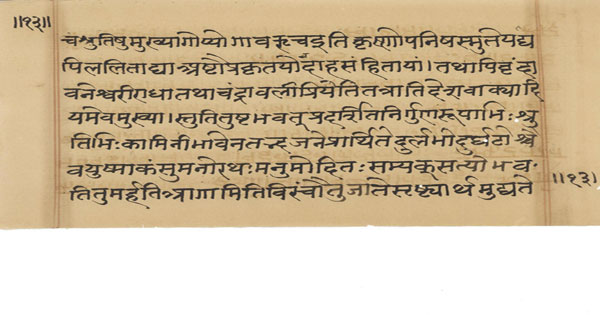 ॥१३॥
चश्रुतिषुमुख्यागोप्योगावऋचइतिकृष्णोपनिषस्मृतेयद्य
पिललिताद्याअष्टौप्रकृतयोदाहसंहितायां।तथापिवृंदा
वनेश्वरीराधातथाचंद्रावलीप्रियेतितत्रातिदेशवाक्यादि
यमेवमुख्या।स्तुतितुष्टभवत्प्रदर्शितनिर्गुणरूपाभिःश्रु
तिभिःकामिनीभावेनतज्जनेप्रार्थितेदुर्लभोदुर्घटश्चै
वयुष्माकंसुमनोरथःमनुमोदितःसम्यक्सत्योभव
तितुमर्हतिआगामितिविरंचौतुजातेसृष्ट्यार्थमुद्यते
॥१३॥